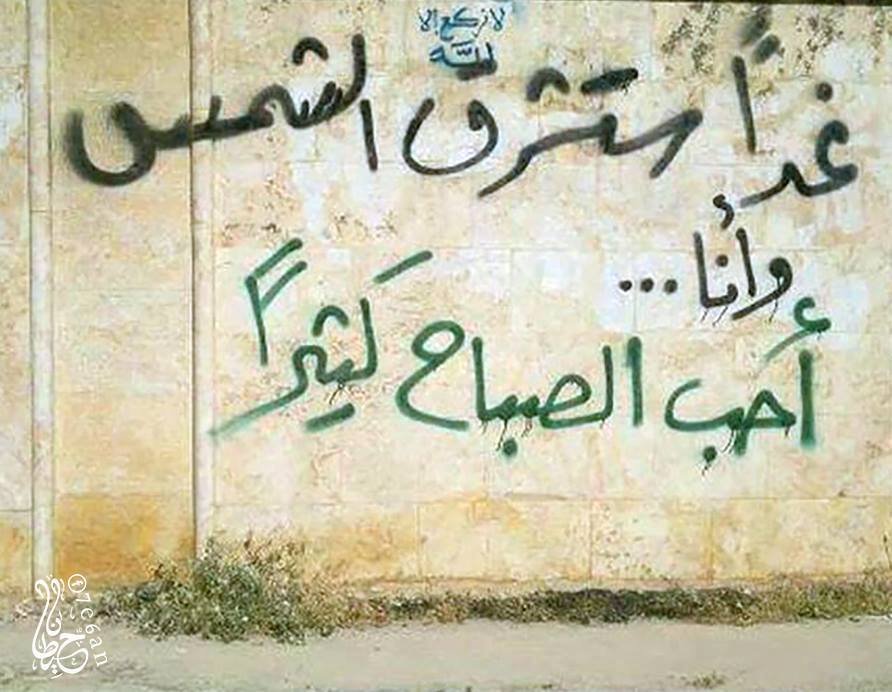 لا نركع إلا
لله
غداً ستشرق الشمس
وأنا...
أحب الصباح كثيراً
حيطان
07e6an